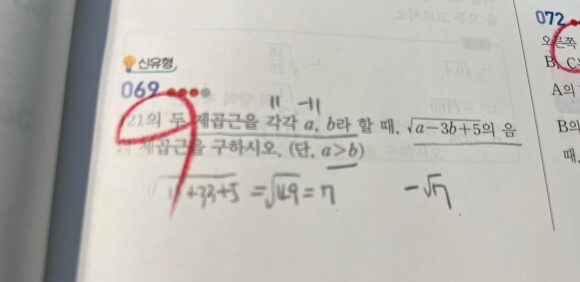 신유형
069
11 -11
121의 두 제곱근을 각각 a, b라 할 때, √a-3b+5의 음
의 제곱근을 구하시오. (단, a>b)
√11+33+5 = √49 = 7 -√7
072
오른쪽
B, C
A의
B의
때,